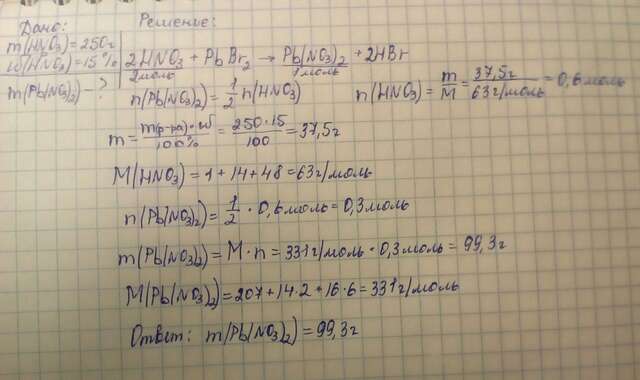 Дано:
Решение:
m(HNO₃)=250г
ω(HNO₃)=15%
m(Pb(NO₃)₂)-?
2HNO₃ + PbBr₂ → Pb(NO₃)₂ + 2HBr
2моль 1моль
n(Pb(NO₃)₂)=1/2 n(HNO₃)
n(HNO₃)= m/M = 37,5г/63г/моль = 0,6моль
m= m(р-ра)·ω/100% = 250·15/100 = 37,5г
M(HNO₃)=1+14+48=63г/моль
n(Pb(NO₃)₂)= 1/2 · 0,6моль=0,3моль
m(Pb(NO₃)₂)=M·n=331г/моль·0,3моль=99,3г
M(Pb(NO₃)₂)=207+14·2+16·6=331г/моль
Ответ: m(Pb(NO₃)₂)=99,3г